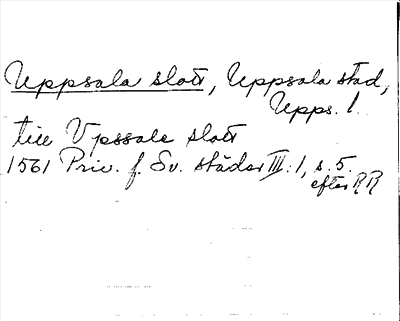 Uppsala slott, Uppsala stad,
Upps. l.
till Vpssale slott
1561 Priv. f. Sv. städer III:1, s. 5.
efter RR